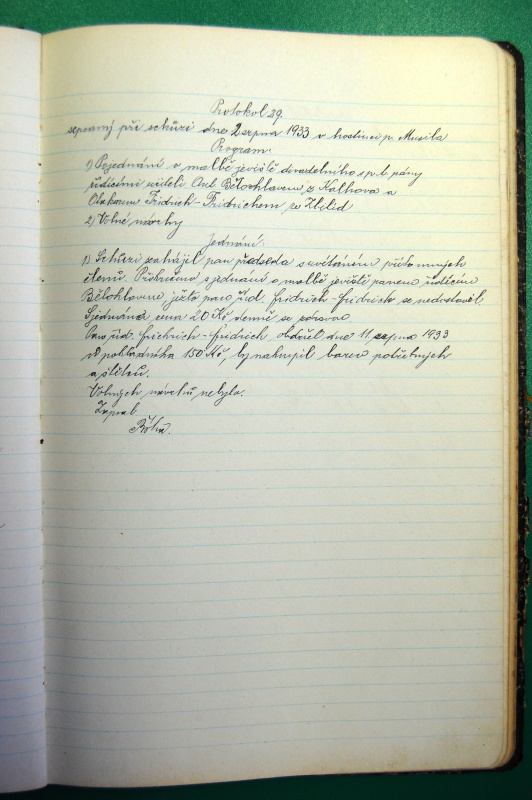 Protokol 29.
sepsaný při schůzi dne 2 srpna 1933 v hostinci p. Musila
Program:
1) Pojednání o malbě jeviště divadelního spol. pány
řídícími učiteli Ant. Bělochlavem z
Otakarem Fridrich-Fridrichem ze
2) Volné návrhy
Jednání:
1) Schůzi zahájil pan předseda s uvítáním přítomných
členů. Přikročeno s jednání o malbě jeviště panem řídícím
Bělohlavem, ježto pan říd. Fridrich-Fridrich se nedostavil
Sjednána cena 20 Kč denně se stravou
Pan říd. Fridrich-Fridrich, obdržel dne 11 srpna 1933
z pokladníka 150 Kč, by nakoupil barev potřebných
a štětců.
Volných návrhů nebylo.
Zapsal